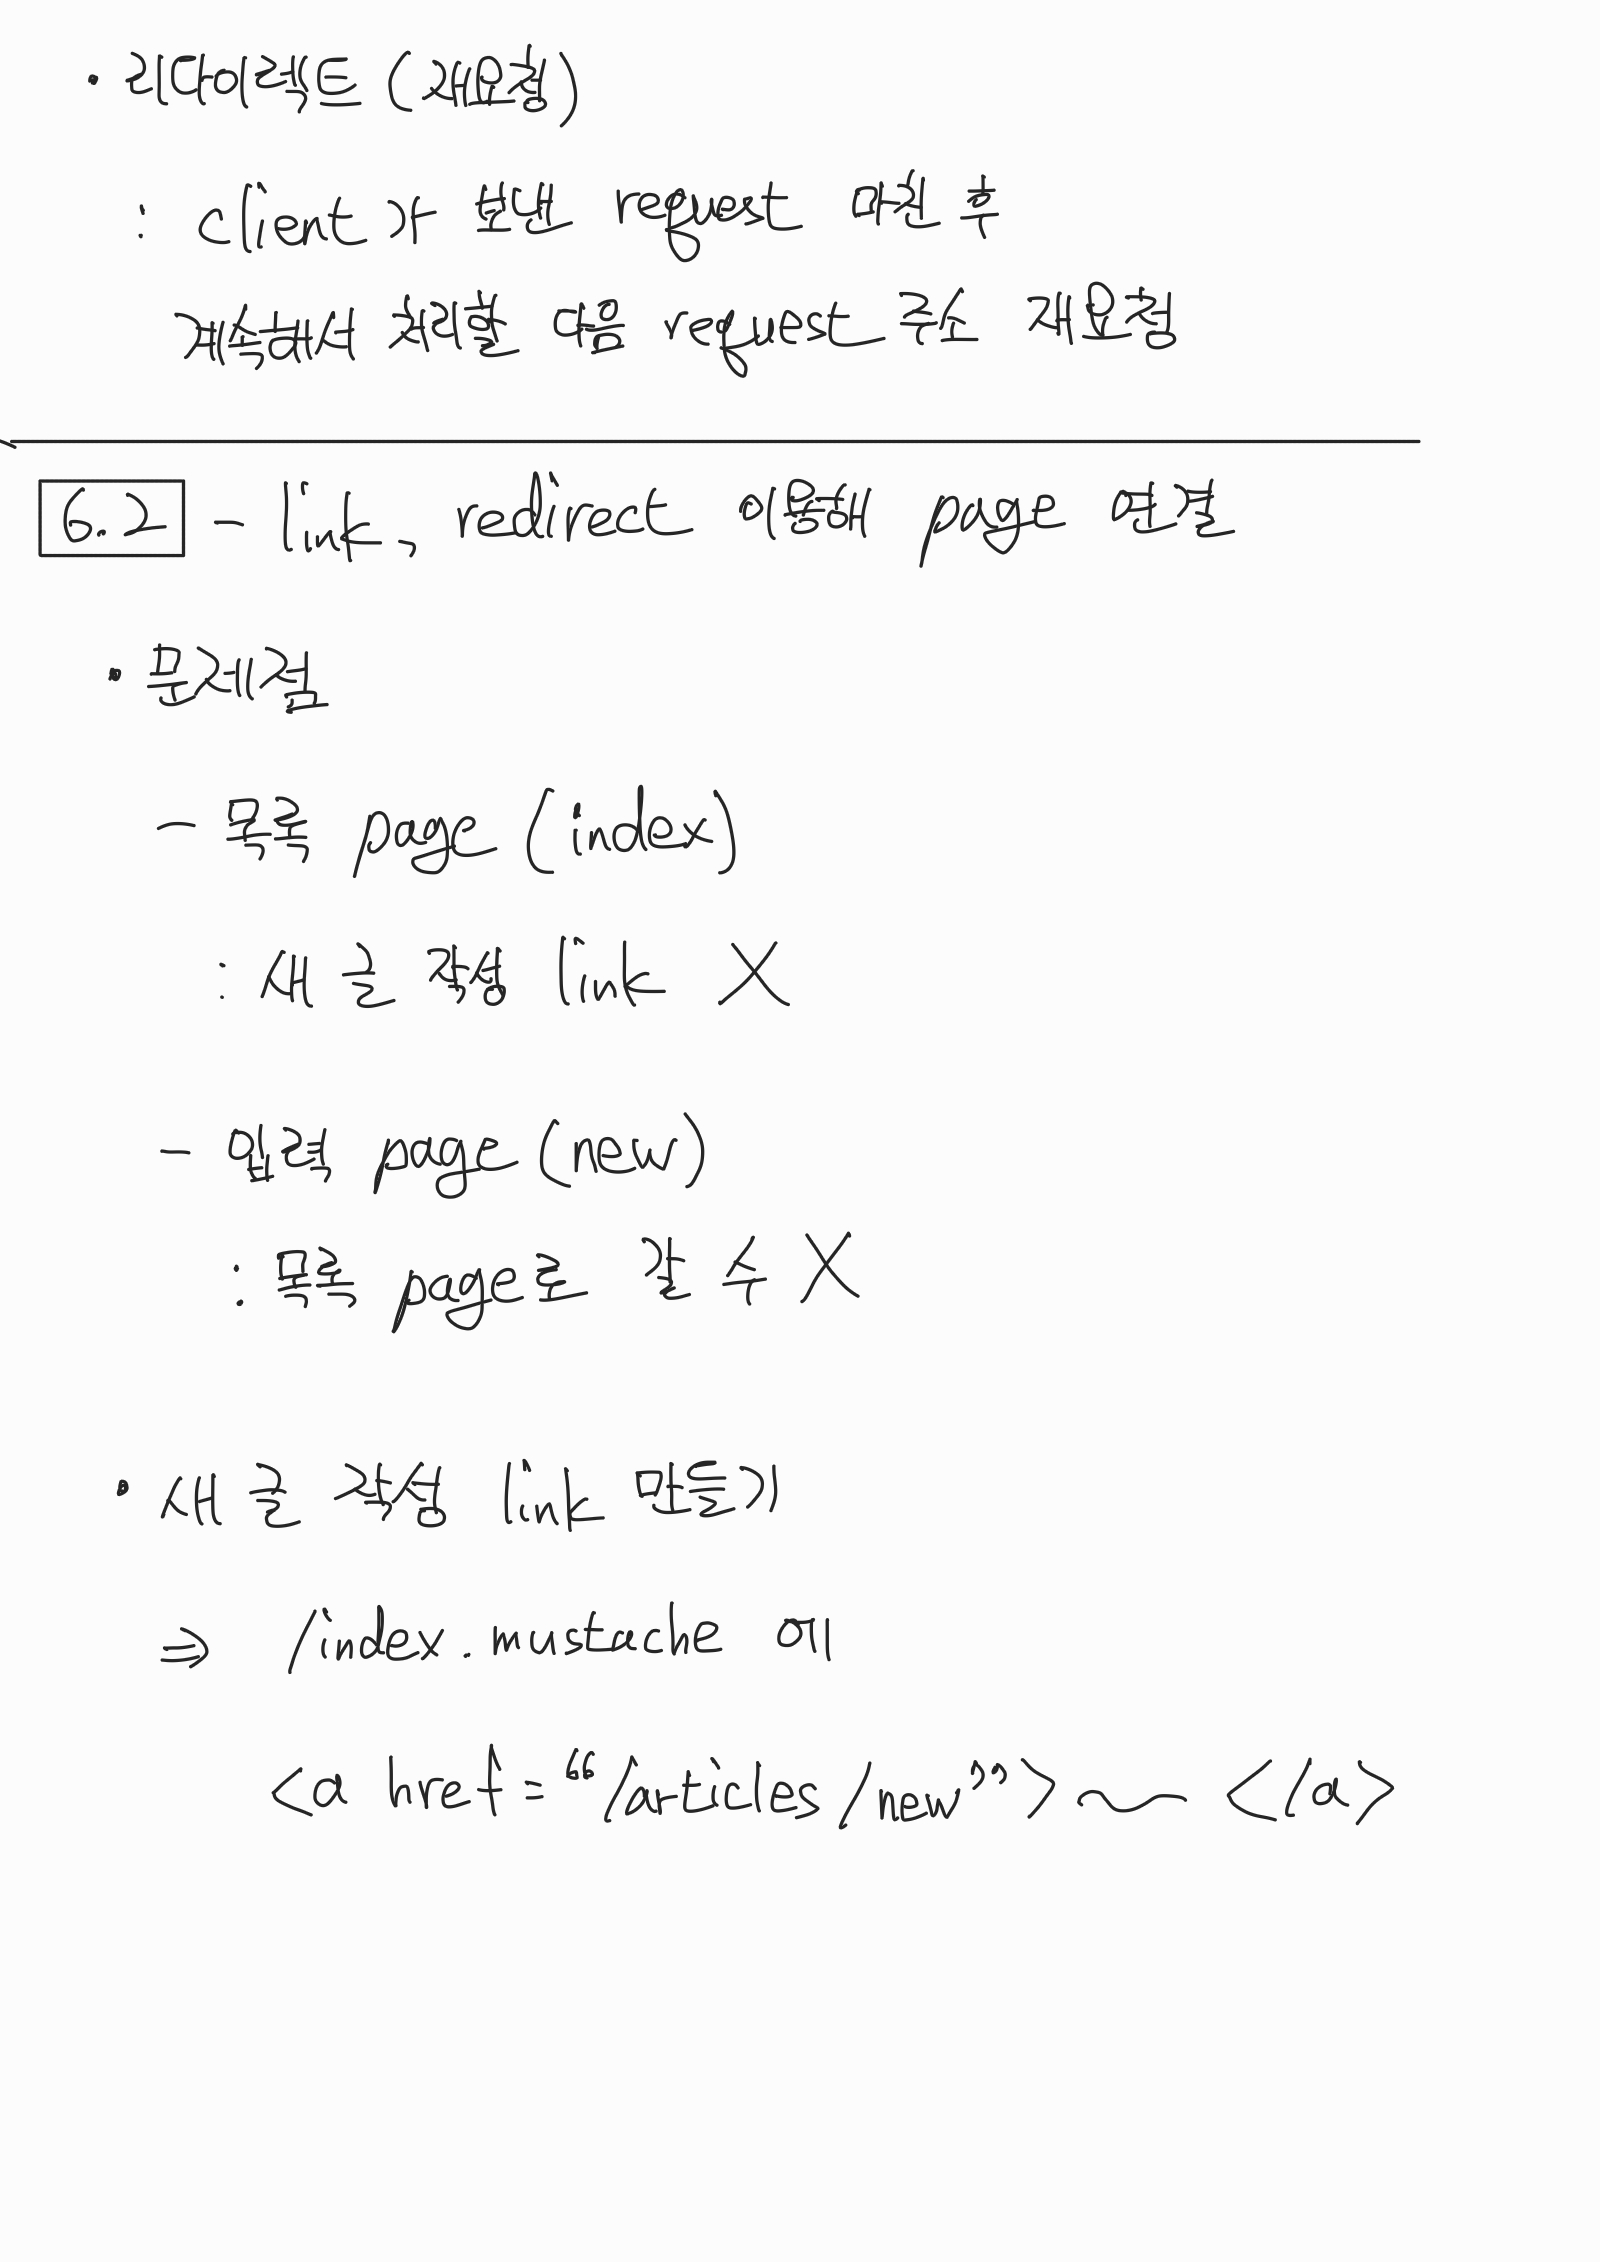 • 리다이렉트 (재요청)
: client가 보낸 request 마친 후
계속해서 처리할 다음 request 주소 재요청
6.2 - link, redirect 이용해 page 연결
• 문제점
- 목록 page (index)
: 새 글 작성 link X
- 입력 page (new)
: 목록 page로 갈 수 X
• 새 글 작성 link 만들기
⇒ /index.mustache 에
<a href = “/articles/new”> ~ </a>